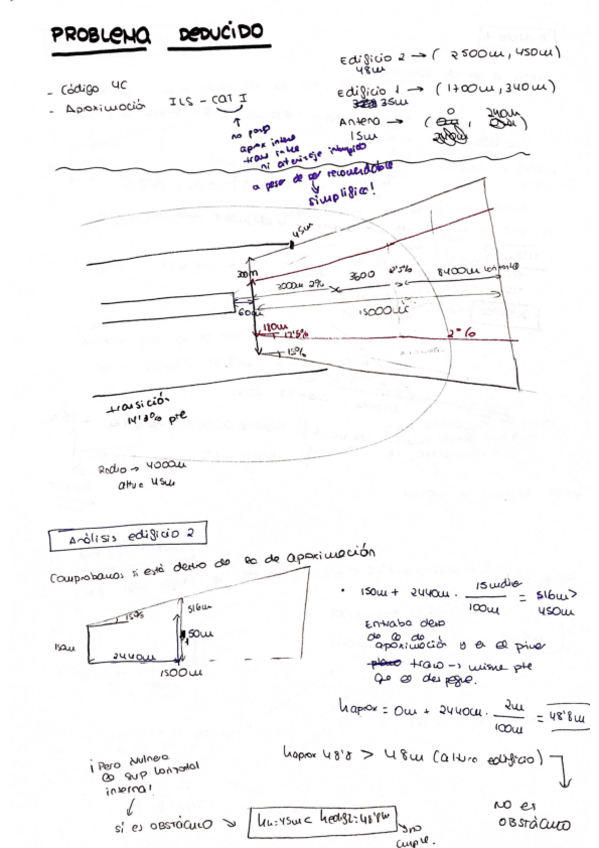 PROBLEMA DEDUCIDO
- Código 4C
- Aproximación ILS - CAT I
no prop
aprox inter
trans inter
ni aterrizaje interrumpido
a pesar de ser recomendable
simplifica!
Edificio 2 → ( 2500m, 450m)
48m
Edificio 1 → ( 1700m, 340m)
35m
Antena → ( 0 , 240m
15m
45m
300m
3000m 2%
3600
2'5%
8400m horizontal
60m
15000m
180m
12'5%
15%
2%
transición
14'3% pte
Radio → 4000m
altura 45m
Análisis edificio 2
Comprobamos si está dentro de la de aproximación
15%
516m
150m
450m
2440m
1500m
• 150m + 2440m · 15m/100m = 516m > 450m
Entraba dentro
de la de
aproximación y en el primer
tramo → misma pte
que en despegue.
h aprox = 0m + 2440m · 2m/100m = 48'8m
h aprox 48'8 > 48m (altura edificio)
NO es
OBSTÁCULO
¡Pero vulnera
la sup horizontal
interna!
sí es OBSTÁCULO → hH=45m < hedif2=48'8m
no
cumple.